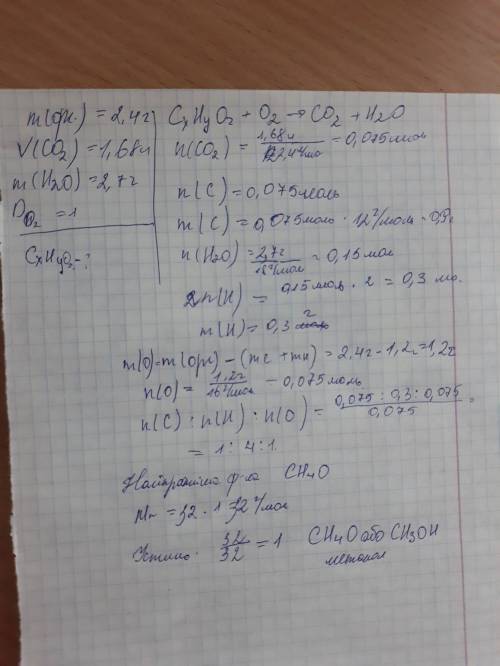 m(орг.) = 2,4г
V(CO2) = 1,68л
m(H2O) = 2,7г
DO2 = 1
CxHyOz - ?
CxHyOz + O2 → CO2 + H2O
n(CO2) = 1,68л / 22,4л/мо = 0,075моль
n(C) = 0,075моль
m(C) = 0,075моль · 12г/моль = 0,9г
n(H2O) = 2,7г / 18г/моль = 0,15мол
n(H) = 0,15моль · 2 = 0,3 мо.
m(H) = 0,3 г
m(O) = m(орг) - (mc + mн) = 2,4г - 1,2г = 1,2г
n(O) = 1,2г / 16г/моль - 0,075моль
n(C) : n(H) : n(O) = 0,075 : 0,3 : 0,075 / 0,075 =
= 1 : 4 : 1
ф-ла CH4O
Mr = 32 · 1 = 32г/мол
32 / 32 = 1 CH4O або CH3OH
метанол